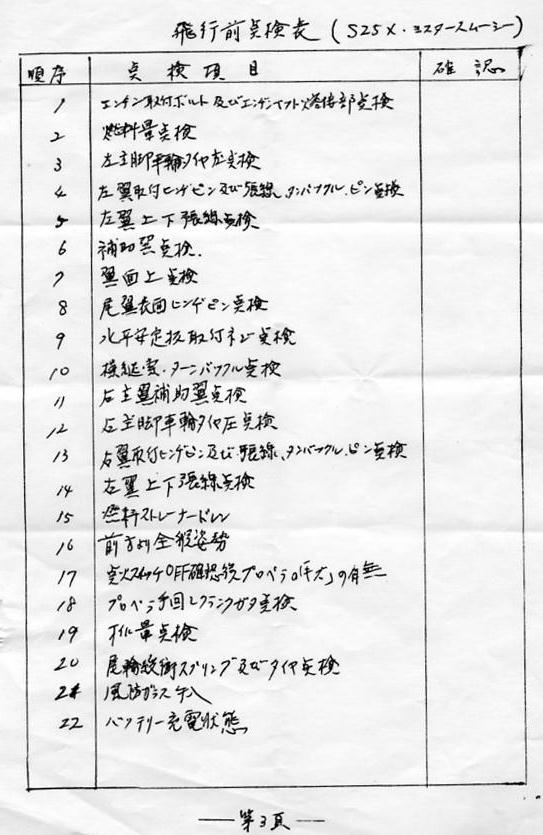 飛行前点検表 (S25X・ミスタースムーシー)
順序 点検項目 確認
1 エンヂン取付ボルト及びエンヂンマウント熔接部点検
2 燃料量点検
3 左主脚車輪タイヤ圧点検
4 左翼取付ヒンヂピン及び張線、タンバックル、ピン点検
5 左翼上下張線点検
6 補助翼点検.
7 翼面上点検
8 尾翼表面ヒンヂピン点検
9 水平安定板取付ネジ点検
10 操縦索・ターンバックル点検
11 右主翼補助翼点検
12 右主脚車輪タイヤ圧点検
13 右翼取付ヒンヂピン及び張線、タンバックル、ピン点検
14 左翼上下張線点検
15 燃料ストレーナードレン
16 前方より全般姿勢
17 点火スイッチOFF確認後プロペラ の有無
18 プロペラ手回しクランクガタ点検
19 オイル量点検
20 尾輪緩衝スプリング及びタイヤ点検
21 風防ガラス
22 バッテリー充電状態
— 第3頁 —